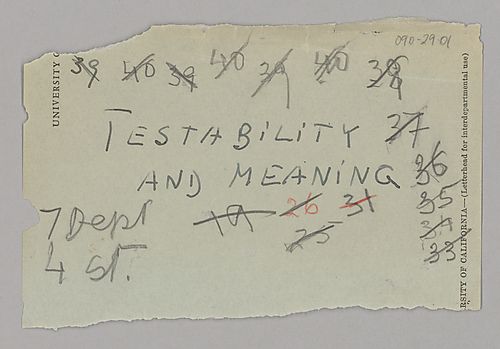 090-29-01
39 40 39 40 39 40 38
TESTABILITY 37
AND MEANING 36
7 Dept 19 26 31 35
4 St. 25 34
33
UNIVERSITY O
RSITY OF CALIFORNIA—(Letterhead for interdepartmental use)